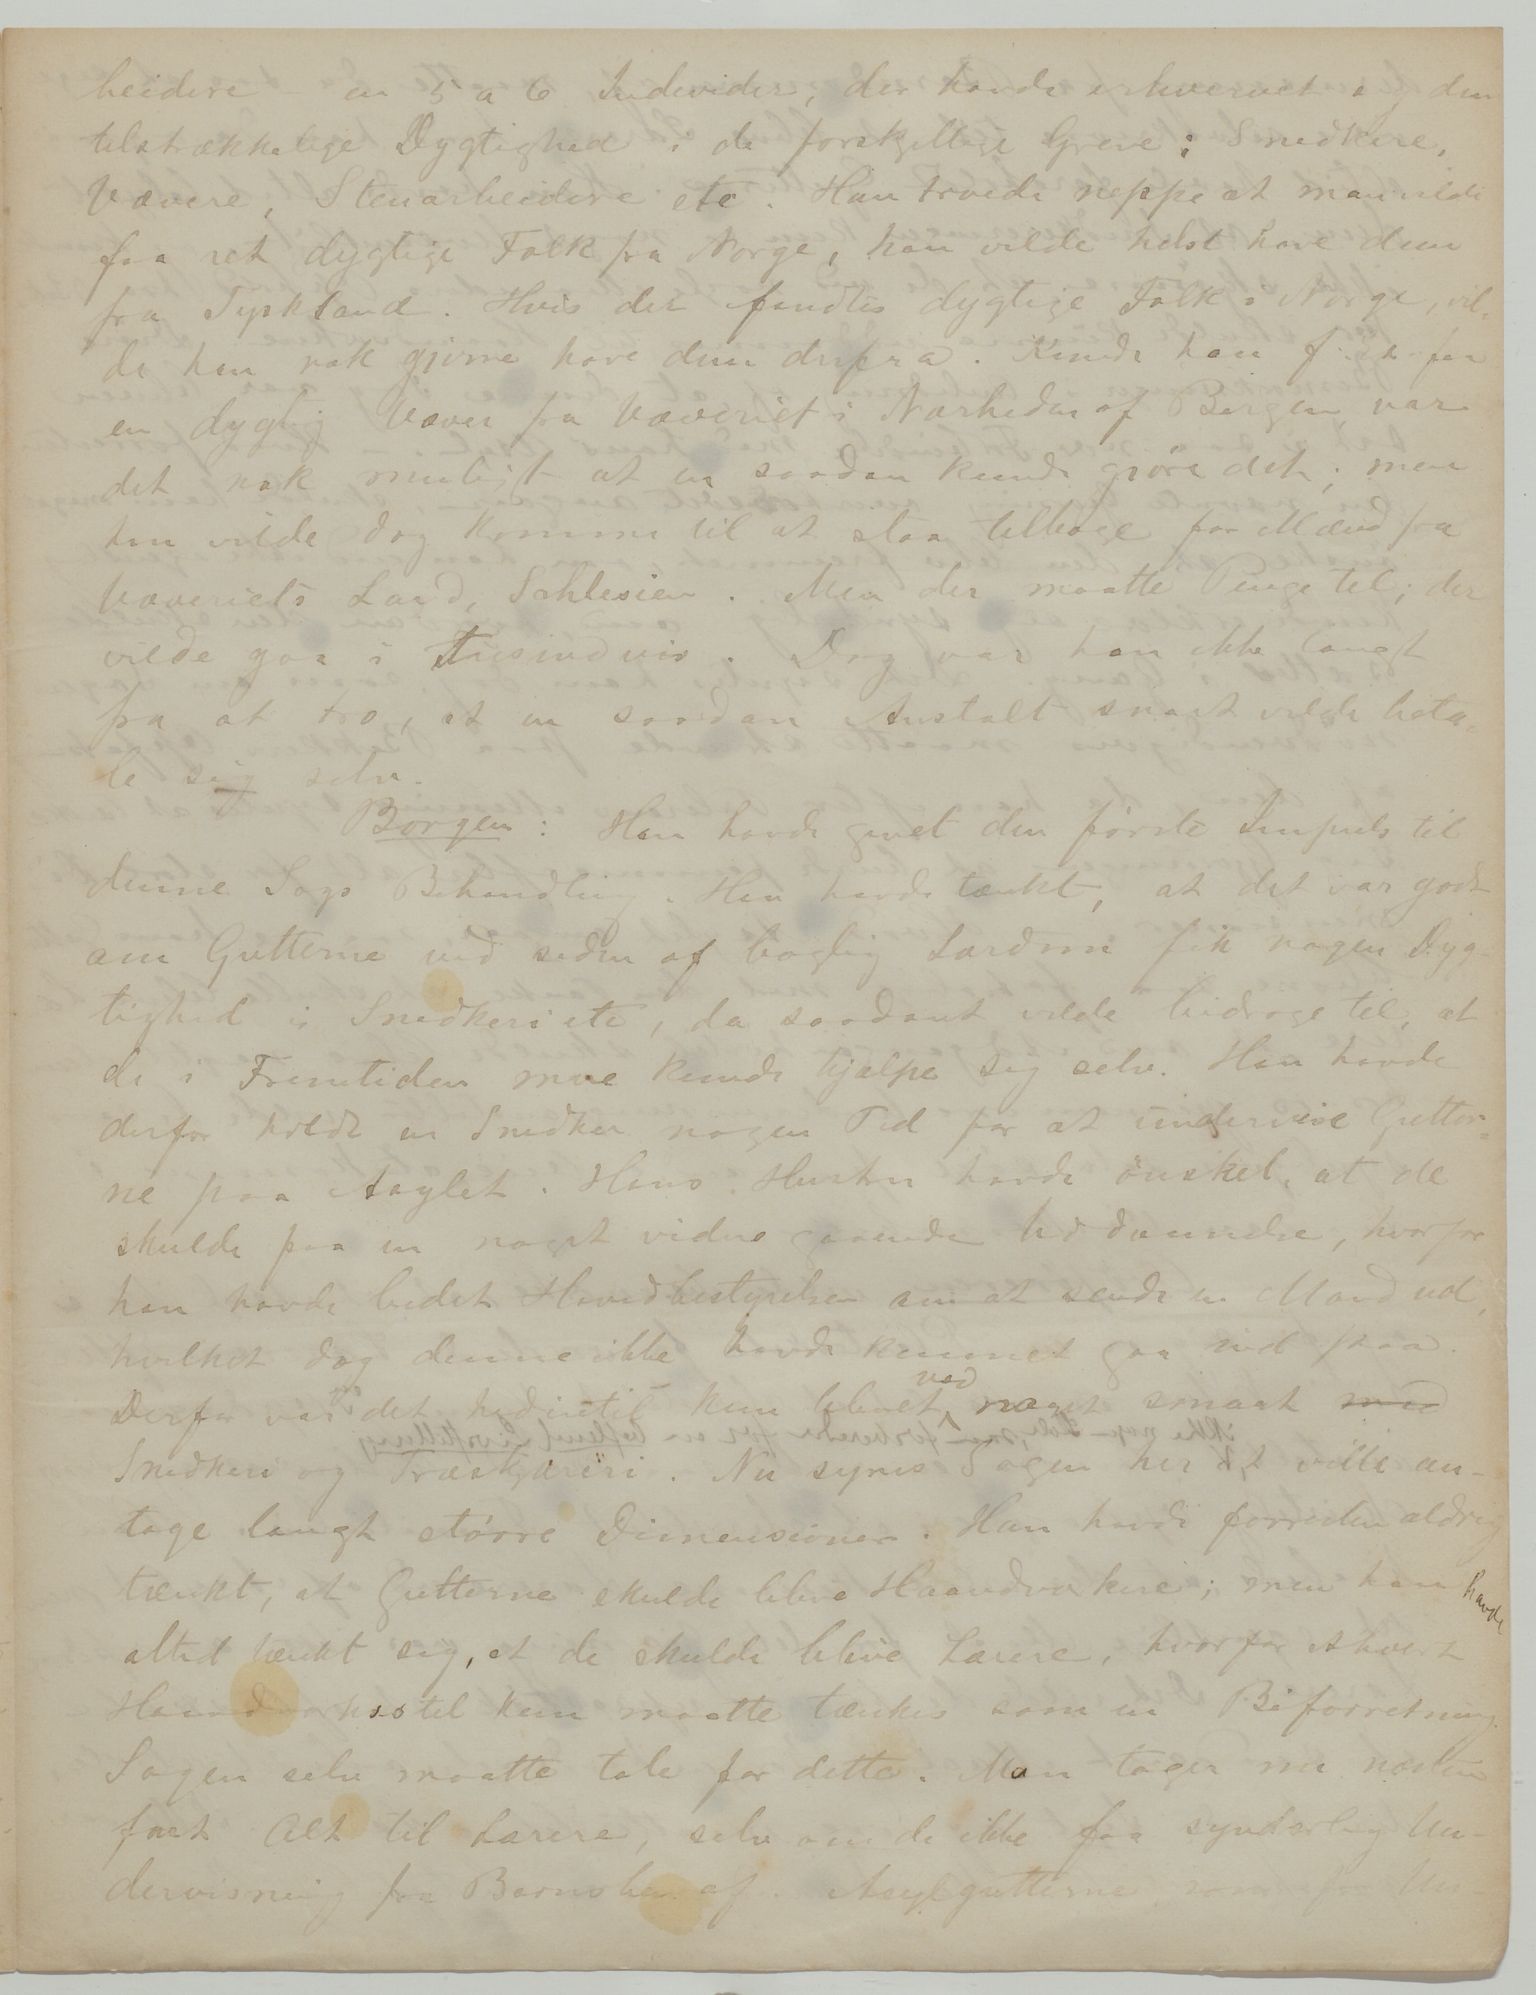 beidere – en 5 a 6 Individer, der havde erhvervet sig den
tilstrækkelige Dygtighed i de forskjellige Grene: Snedkere,
Vævere, Stenarbeidere etc. Han troede neppe at man vilde
faa ret dygtige Folk fra Norge, han vilde helst have dem
fra Tyskland. Hvis der fandtes dygtige Folk i Norge, vil-
de han nok gjerne have dem derfra. Kunde han faa
en dygtig Væver fra Væveriet i Nærheden af Bergen, var
det nok muligt at en saadan kunde gjöre det; men
han vilde dog komme til at staa tilbage for Mænd fra
Væveriets Land, Schlesien. Men der maatte Penge til; der
vilde gaa i Tusindvis. Dog var han ikke langt
fra at tro, at en saadan Anstalt snart vilde beta-
le sig selv.
Borgen: Han havde givet den förste Impuls til
denne Sags Behandling. Han havde tænkt, at det var godt
om Gutterne ved siden af boglig Lærdom fik nogen Dyg-
tighed i Snedkeri etc, da saadant vilde bidrage til, at
de i Fremtiden mere kunde hjælpe sig selv. Han havde
derfor holdt en Snedker nogen Tid for at undervise Gutter-
ne paa Asylet. Hans Hustru havde önsket, at de
skulde faa en noget videre gaaende Uddannelse, hvorfor
han havde bedet Hovedbestyrelsen om at sende en Mand ud,
hvilket dog denne ikke havde kunnet gaa ind paa.
Derfor var det hidindtil kun blevet ved noget smaat med
Snedkeri og Træskjæreri. Nu synes Sagen her at ville an-
tage langt större Dimensioner. Han havde forresten aldrig
tænkt, at Gutterne skulde blive Haandværkere; men han havde
altid tænkt sig, at de skulde blive Lærere, hvorfor ethvert
Haandværk kun maatte tænkes som en Biforretning.
Sagen selv maatte tale for dette. Man tager nu næsten
fast Alt til Lærere, selv om de ikke faa synderlig Un-
dervisning fra Barnsben af. Asylgutterne, som faa Un-